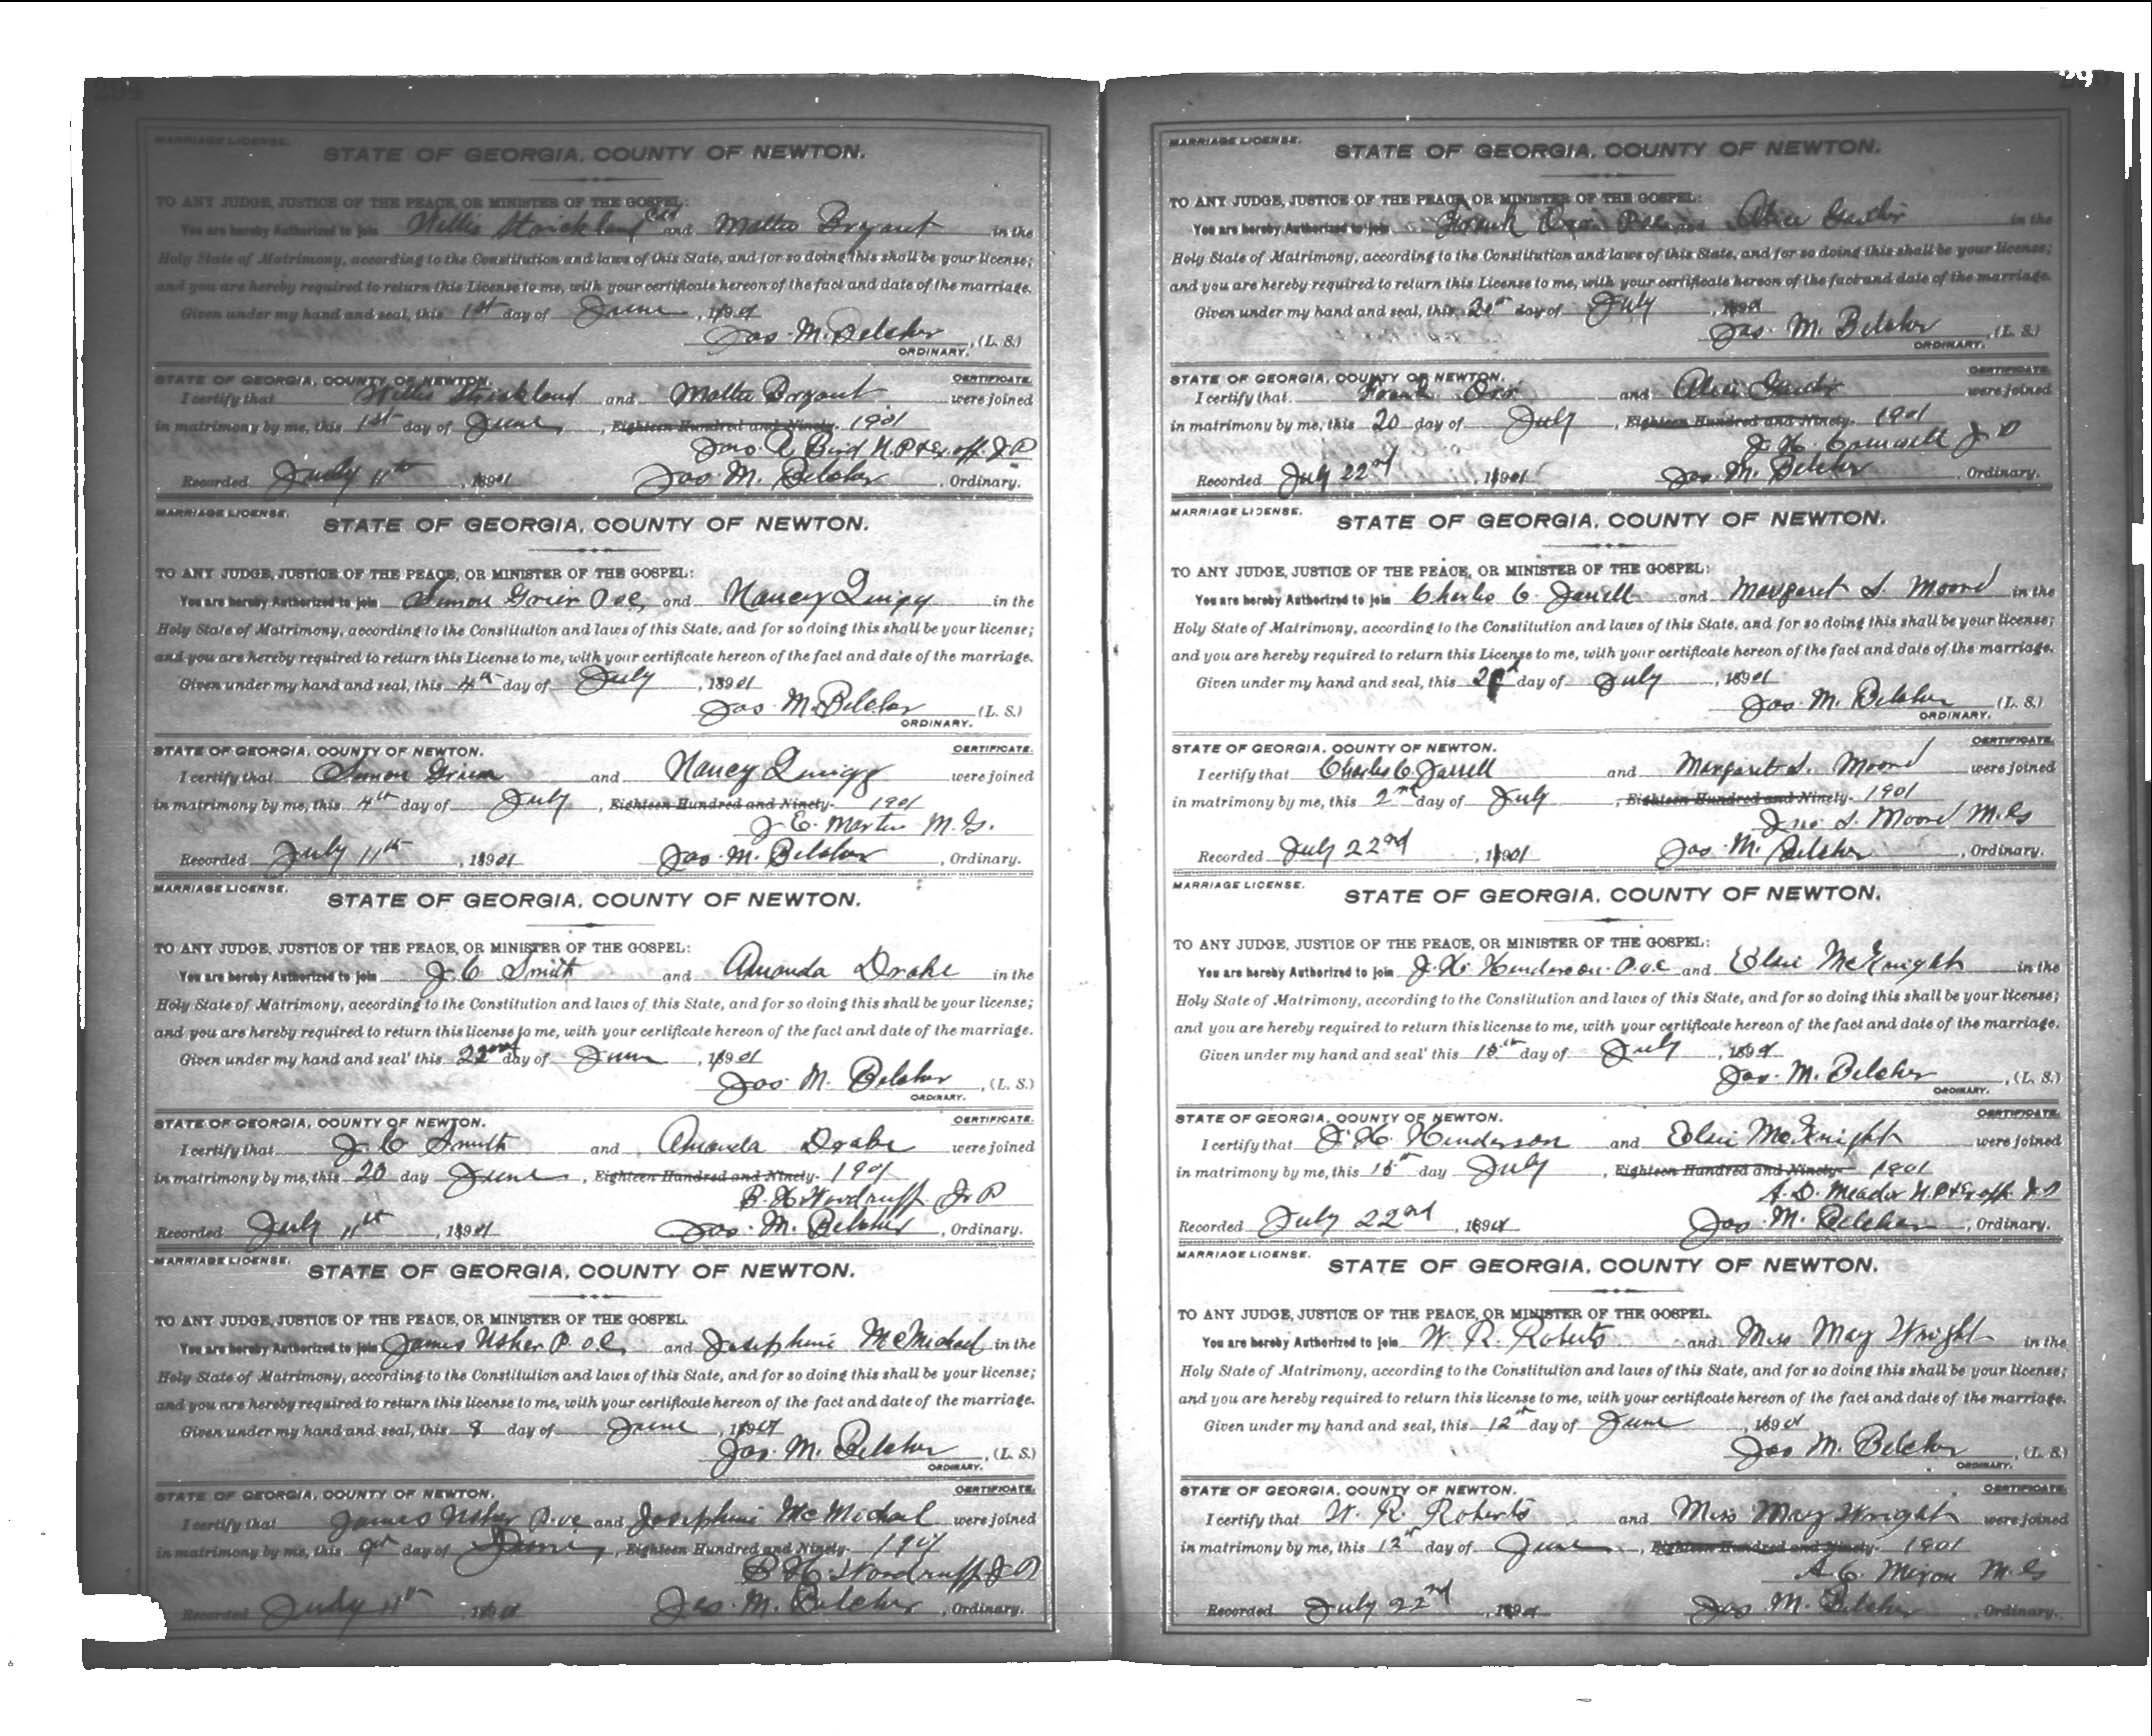 MARRIAGE LICENSE.
STATE OF GEORGIA, COUNTY OF NEWTON.
TO ANY JUDGE, JUSTICE OF THE PEACE, OR MINISTER OF THE GOSPEL:
You are hereby Authorized to join Willis Strickland Cold and Mattie Bryant in the
Holy State of Matrimony, according to the Constitution and laws of this State, and for so doing this shall be your license;
and you are hereby required to return this License to me, with your certificate hereon of the fact and date of the marriage.
Given under my hand and seal, this 1st day of June, 1901
Jas. M. Belcher, (L. S.)
ORDINARY.
STATE OF GEORGIA, COUNTY OF NEWTON. CERTIFICATE.
I certify that Willis Strickland and Mattie Bryant were joined
in matrimony by me, this 1st day of June, Eighteen Hundred and Ninety- 1901
Jno. A. Bird N.P. & Ex. off. J P
Recorded July 11th, 1901 Jas. M. Belcher, Ordinary.
MARRIAGE LICENSE.
STATE OF GEORGIA, COUNTY OF NEWTON.
TO ANY JUDGE, JUSTICE OF THE PEACE, OR MINISTER OF THE GOSPEL:
You are hereby Authorized to join Simon Grier P.o.C. and Nancy Quigg in the
Holy State of Matrimony, according to the Constitution and laws of this State, and for so doing this shall be your license;
and you are hereby required to return this License to me, with your certificate hereon of the fact and date of the marriage.
Given under my hand and seal, this 4th day of July, 1901
Jas. M. Belcher (L. S.)
ORDINARY.
STATE OF GEORGIA, COUNTY OF NEWTON. CERTIFICATE.
I certify that Simon Grier and Nancy Quigg were joined
in matrimony by me, this 4th day of July, Eighteen Hundred and Ninety- 1901
J. E. Martin M.G.
Recorded July 11th, 1901 Jas. M. Belcher, Ordinary.
MARRIAGE LICENSE.
STATE OF GEORGIA, COUNTY OF NEWTON.
TO ANY JUDGE, JUSTICE OF THE PEACE, OR MINISTER OF THE GOSPEL:
You are hereby Authorized to join J. C Smith and Amanda Drake in the
Holy State of Matrimony, according to the Constitution and laws of this State, and for so doing this shall be your license;
and you are hereby required to return this license to me, with your certificate hereon of the fact and date of the marriage.
Given under my hand and seal' this 22nd day of June, 1901
Jas. M. Belcher, (L. S.)
ORDINARY.
STATE OF GEORGIA, COUNTY OF NEWTON. CERTIFICATE.
I certify that J. C Smith and Amanda Drake were joined
in matrimony by me, this 20 day June, Eighteen Hundred and Ninety- 1901
B. H. Woodruff J. P
Recorded July 11th, 1901 Jas. M. Belcher, Ordinary.
MARRIAGE LICENSE.
STATE OF GEORGIA, COUNTY OF NEWTON.
TO ANY JUDGE, JUSTICE OF THE PEACE, OR MINISTER OF THE GOSPEL.
You are hereby Authorized to join James Usher P.o.C. and Josephine McMichael in the
Holy State of Matrimony, according to the Constitution and laws of this State, and for so doing this shall be your license;
and you are hereby required to return this license to me, with your certificate hereon of the fact and date of the marriage.
Given under my hand and seal, this 8 day of June, 1901
Jas. M. Belcher, (L. S.)
ORDINARY.
STATE OF GEORGIA, COUNTY OF NEWTON. CERTIFICATE.
I certify that James Usher P.o.C. and Josephine McMichael were joined
in matrimony by me, this 9th day of June, Eighteen Hundred and Ninety- 1901
B. H. Woodruff J P
Recorded July 11th, 1901 Jas. M. Belcher, Ordinary.
MARRIAGE LICENSE.
STATE OF GEORGIA, COUNTY OF NEWTON.
TO ANY JUDGE, JUSTICE OF THE PEACE, OR MINISTER OF THE GOSPEL:
You are hereby Authorized to join Frank Orr and Alice in the
Holy State of Matrimony, according to the Constitution and laws of this State, and for so doing this shall be your license;
and you are hereby required to return this License to me, with your certificate hereon of the fact and date of the marriage.
Given under my hand and seal, this 20th day of July, 1901
Jas. M. Belcher, (L. S.)
ORDINARY.
STATE OF GEORGIA, COUNTY OF NEWTON. CERTIFICATE.
I certify that Frank Orr and Alice were joined
in matrimony by me, this 20 day of July, Eighteen Hundred and Ninety- 1901
J. H. J P
Recorded July 22nd, 1901 Jas. M. Belcher, Ordinary.
MARRIAGE LICENSE.
STATE OF GEORGIA, COUNTY OF NEWTON.
TO ANY JUDGE, JUSTICE OF THE PEACE, OR MINISTER OF THE GOSPEL:
You are hereby Authorized to join Charles C. Jarrell and Margaret S. Moore in the
Holy State of Matrimony, according to the Constitution and laws of this State, and for so doing this shall be your license;
and you are hereby required to return this License to me, with your certificate hereon of the fact and date of the marriage.
Given under my hand and seal, this day of July, 1901
Jas. M. Belcher (L. S.)
ORDINARY.
STATE OF GEORGIA, COUNTY OF NEWTON. CERTIFICATE.
I certify that Charles C. Jarrell and Margaret S. Moore were joined
in matrimony by me, this 2nd day of July, Eighteen Hundred and Ninety- 1901
Jno. S. Moore M.G
Recorded July 22nd, 1901 Jas. M. Belcher, Ordinary.
MARRIAGE LICENSE.
STATE OF GEORGIA, COUNTY OF NEWTON.
TO ANY JUDGE, JUSTICE OF THE PEACE, OR MINISTER OF THE GOSPEL:
You are hereby Authorized to join J. H. Henderson P.o.C and McKnight in the
Holy State of Matrimony, according to the Constitution and laws of this State, and for so doing this shall be your license;
and you are hereby required to return this license to me, with your certificate hereon of the fact and date of the marriage.
Given under my hand and seal' this 15th day of July, 1901
Jas. M. Belcher, (L. S.)
ORDINARY.
STATE OF GEORGIA, COUNTY OF NEWTON. CERTIFICATE.
I certify that J. H. Henderson and McKnight were joined
in matrimony by me, this 15th day July, Eighteen Hundred and Ninety- 1901
A. D. Meador N.P. & Ex off. J P
Recorded July 22nd, 1901 Jas. M. Belcher, Ordinary.
MARRIAGE LICENSE.
STATE OF GEORGIA, COUNTY OF NEWTON.
TO ANY JUDGE, JUSTICE OF THE PEACE, OR MINISTER OF THE GOSPEL.
You are hereby Authorized to join W. R. Roberts and Miss May Wright in the
Holy State of Matrimony, according to the Constitution and laws of this State, and for so doing this shall be your license;
and you are hereby required to return this license to me, with your certificate hereon of the fact and date of the marriage.
Given under my hand and seal, this 12th day of June, 1901
Jas M. Belcher, (L. S.)
ORDINARY.
STATE OF GEORGIA, COUNTY OF NEWTON. CERTIFICATE.
I certify that W. R. Roberts and Miss May Wright were joined
in matrimony by me, this 12th day of June, Eighteen Hundred and Ninety- 1901
A. C. Mixon M.G
Recorded July 22nd, 1901 Jas M. Belcher, Ordinary.